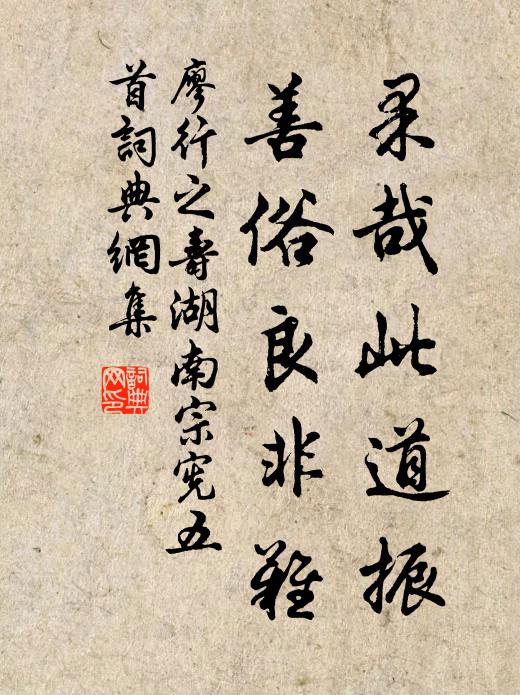 果哉此道振
善俗良非難
廖行之壽湖南宗憲五
首詞典網集
詞典
网印